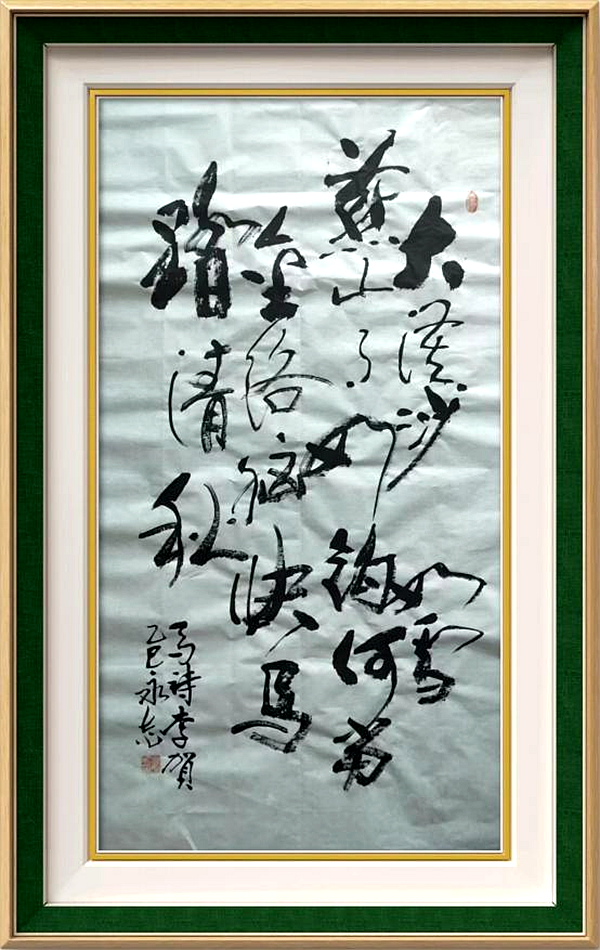 大漠沙如雪
燕山月如钩何当
金络脑快馬
踏清秋
马诗李贺
乙巳永志